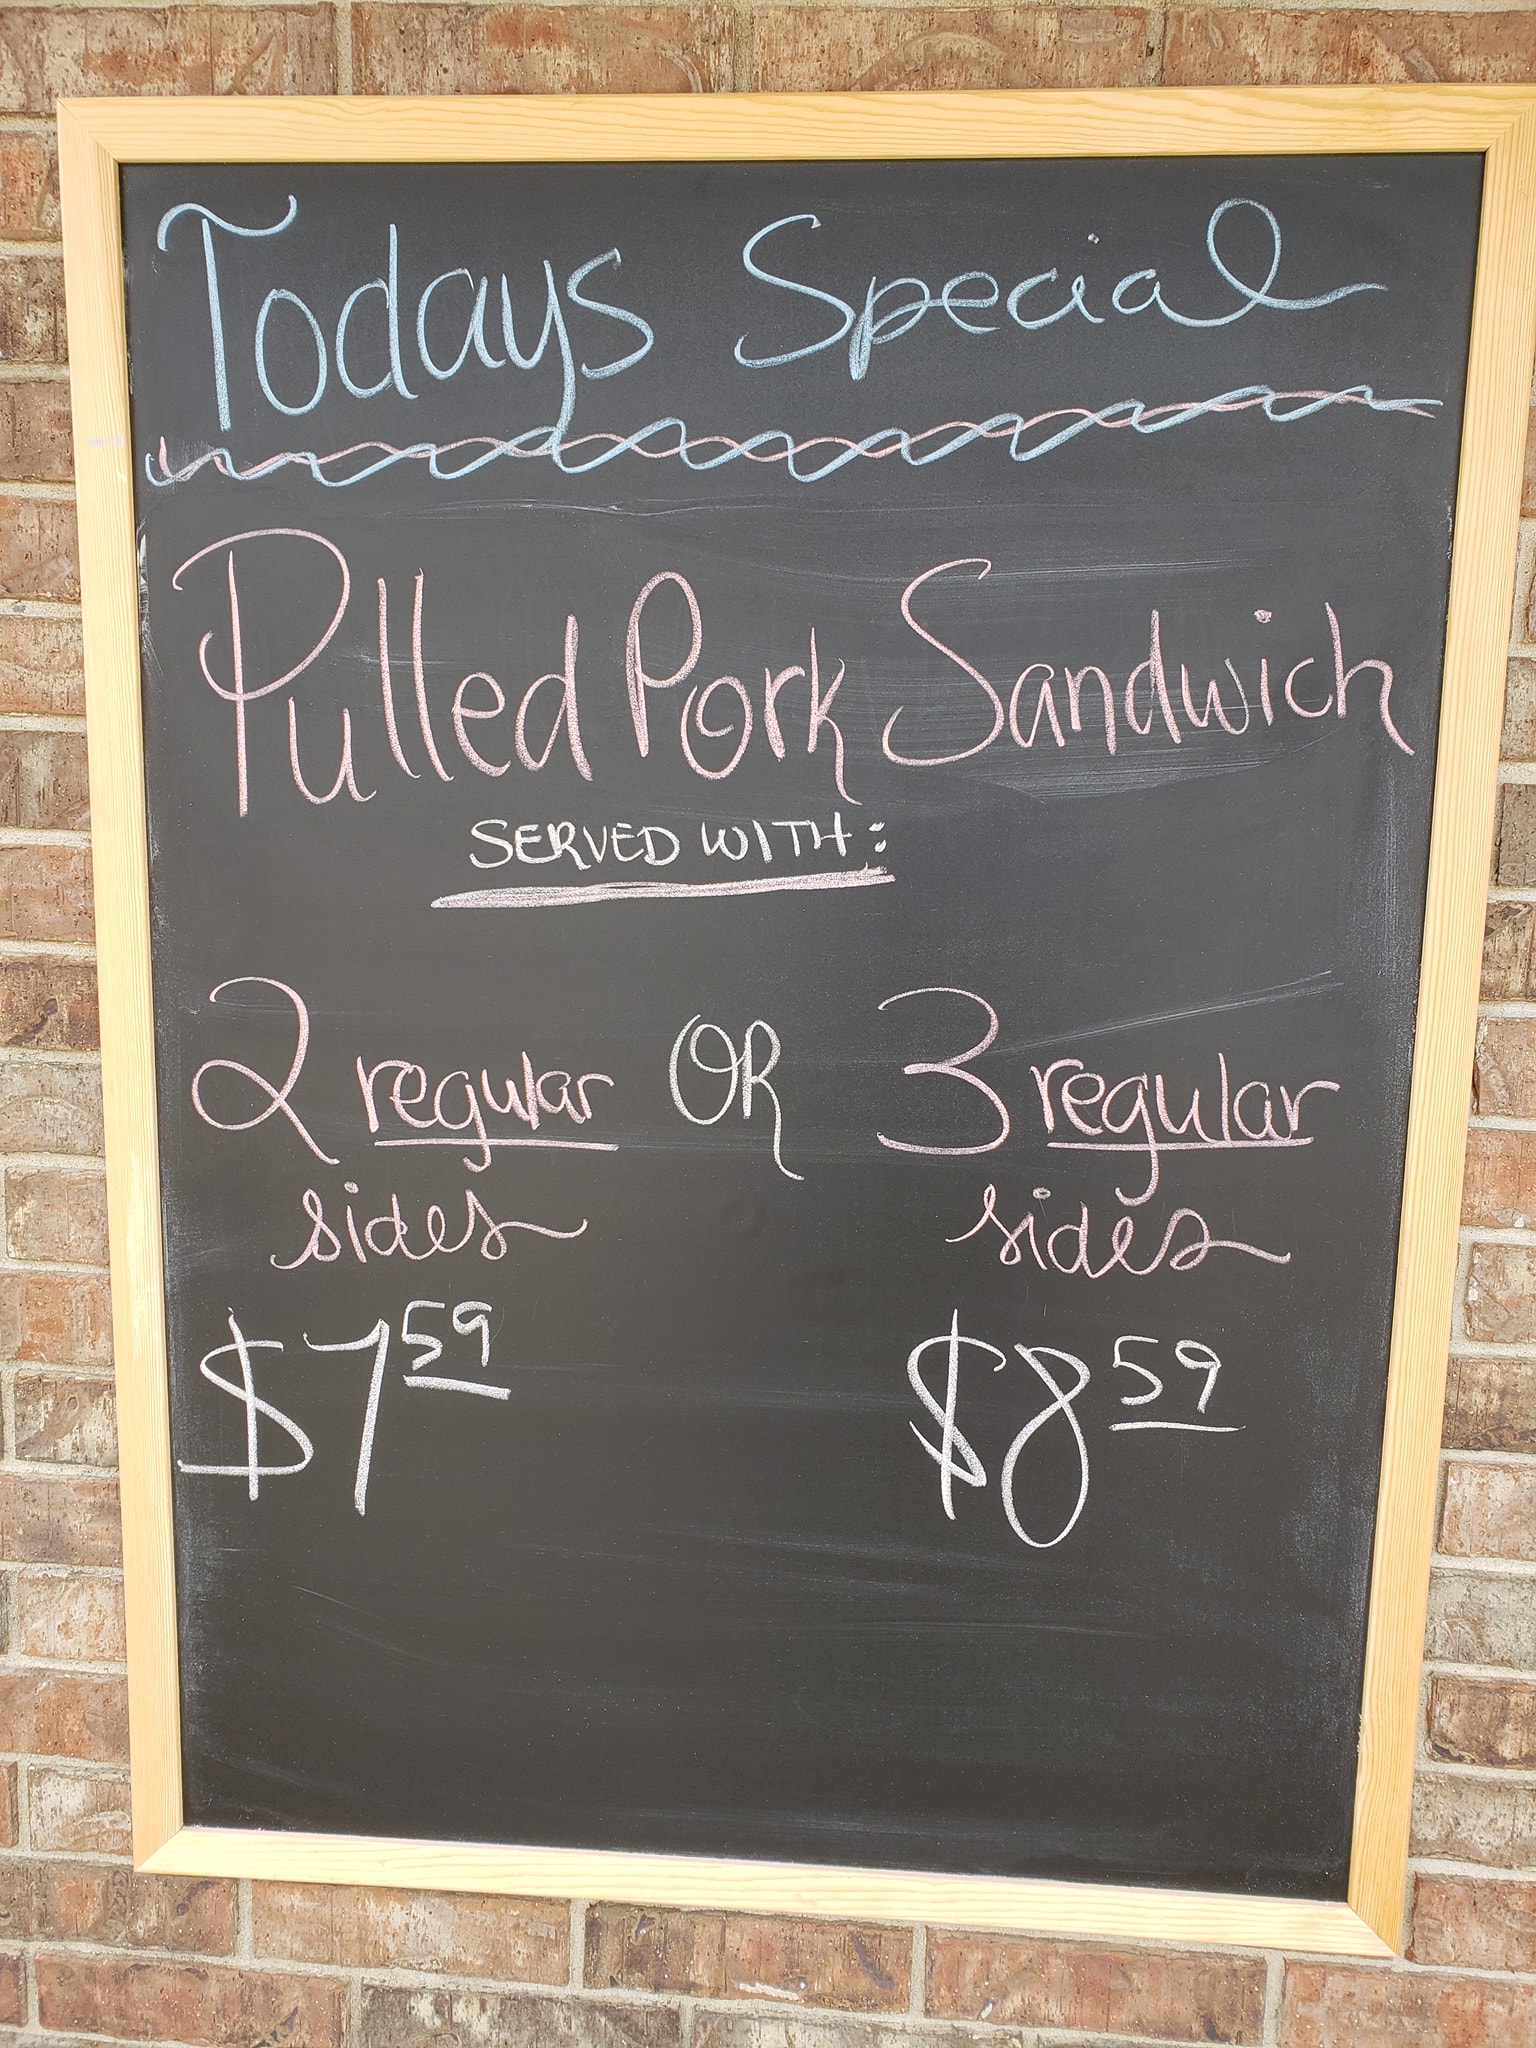 Todays Special
Pulled Pork Sandwich
SERVED WITH:
2 regular OR 3 regular
sides sides
$7 59 $8 59